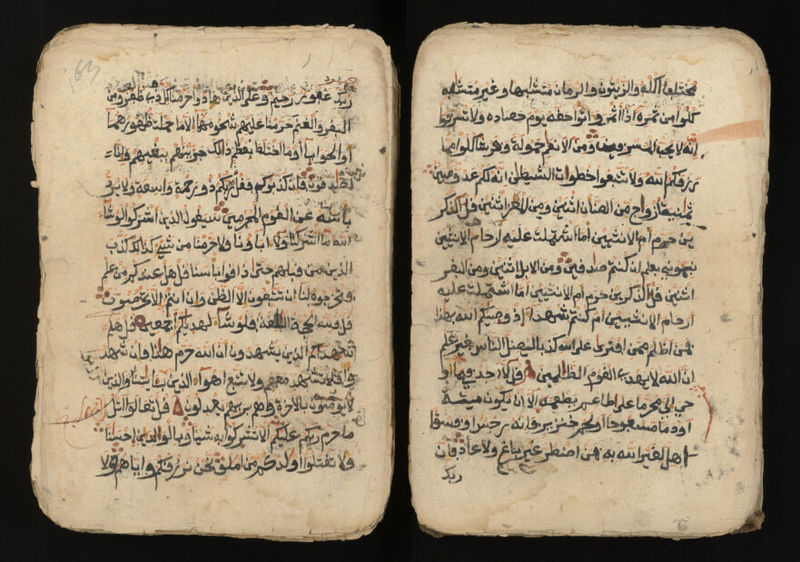 مختلفا اكله والزيتون والرمان متشبها وغير متشبه
كلوا من ثمره اذا اثمر واتوا حقه يوم حصاده ولا تسرفوا
انه لا يحب المسرفين ومن الانعم حمولة وفرشا كلوا مما
رزقكم الله ولا تتبعوا خطوات الشيطن انه لكم عدو مبين
ثمنية ازواج من الضان اثنين ومن المعز اثنين قل الذكر
ين حرم ام الانثيين اما اشتملت عليه ارحام الانثيين
نبوني بعلم ان كنتم صدقين ومن الابل اثنين ومن البقر
اثنين قل الذكرين حرم ام الانثيين اما اشتملت عليه
ارحام الانثيين ام كنتم شهدا اذ وصيكم الله بهذا
فمن اظلم ممن افترى على الله كذبا ليضل الناس بغير علم
ان الله لا يهدي القوم الظلمين قل لا اجد فيما او
حي الي محرما على طاعم يطعمه الا ان يكون ميتة
او دما مسفوحا او لحم خنزير فانه رجس او فسقا
اهل لغير الله به فمن اضطر غير باغ ولا عاد فان
ربك
163
ربك غفور رحيم وعلى الذين هادوا حرمنا كل ذي ظفر ومن
البقر والغنم حرمنا عليهم شحومهما الا ما حملت ظهورهما
او الحوايا او ما اختلط بعظم ذالك جزينهم ببغيهم وانا
لصدقون فان كذبوك فقل ربكم ذو رحمة واسعة ولا يرد
باسه عن القوم المجرمين سيقول الذين اشركوا لو شاء
الله ما اشركنا ولا اباونا ولا حرمنا من شيء كذلك كذب
الذين من قبلهم حتى ذاقوا باسنا قل هل عندكم من علم
فتخرجوه لنا ان تتبعون الا الظن وان انتم الا تخرصون
قل فلله الحجة البلغة فلو شاء لهديكم اجمعين قل هلم
شهداكم الذين يشهدون ان الله حرم هذا فان شهد
وا فلا تشهد معهم ولا تتبع اهواء الذين كذبوا بايتنا والذين
لا يومنون بالاخرة وهم بربهم يعدلون قل تعالوا اتل
ما حرم ربكم عليكم الا تشركوا به شيا وبالوالدين احسنا
ولا تقتلوا اولدكم من املق نحن نرزقكم واياهم ولا